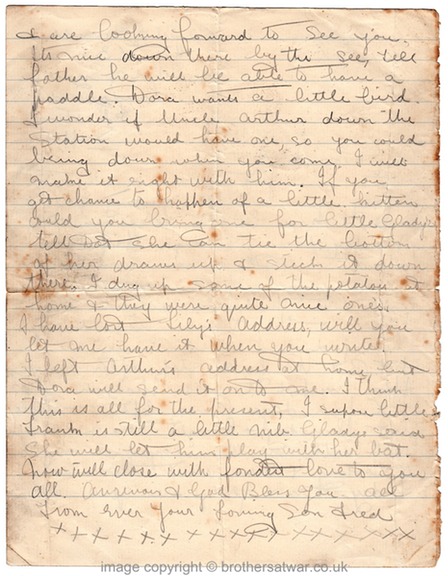 I are looking forward to see you.
Its nice down there by the see, tell
father he will be able to have a
paddle. Dora wants a little bird.
I wonder if Uncle Arthur down the
Station would have one so you could
bring down when you come, I will
make it right with him. If you
get chance to happen of a little kitten
could you bring one for little Gladys
tell Dot she can tie the bottom
of her drawers up & stick it down
there. I dug up some of the potatoes at
home & they were quite nice ones.
I have lost Lily's Address, will you
let me have it when you write.
I left Arthur's address at home but
Dora will send it on to me. I think
this is all for the present, I supose little
Frank is still a little nib Gladys said
She will let him play with her bat.
Now will close with fondest love to you
all. Au revoir & God Bless You all
From Ever Your loving Son Fred
x x x x x x x x x x x x x x x x x
image copyright © brothersatwar.co.uk